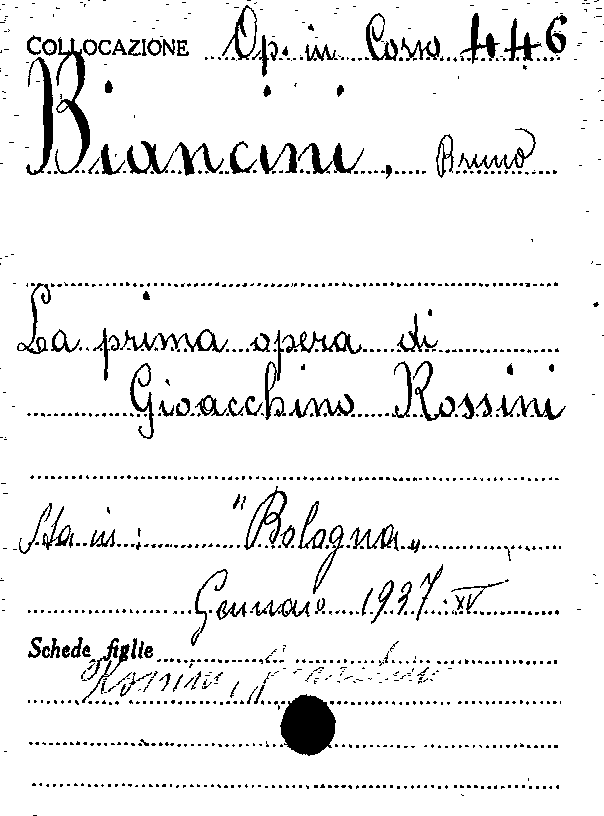 COLLOCAZIONE Op. in Corso 446
Biancini, Bruno
La prima opera di
Gioacchino Rossini
Sta in: "Bologna„
Gennaio 1937. XV
Schede figlie
Rossini, Gioacchino